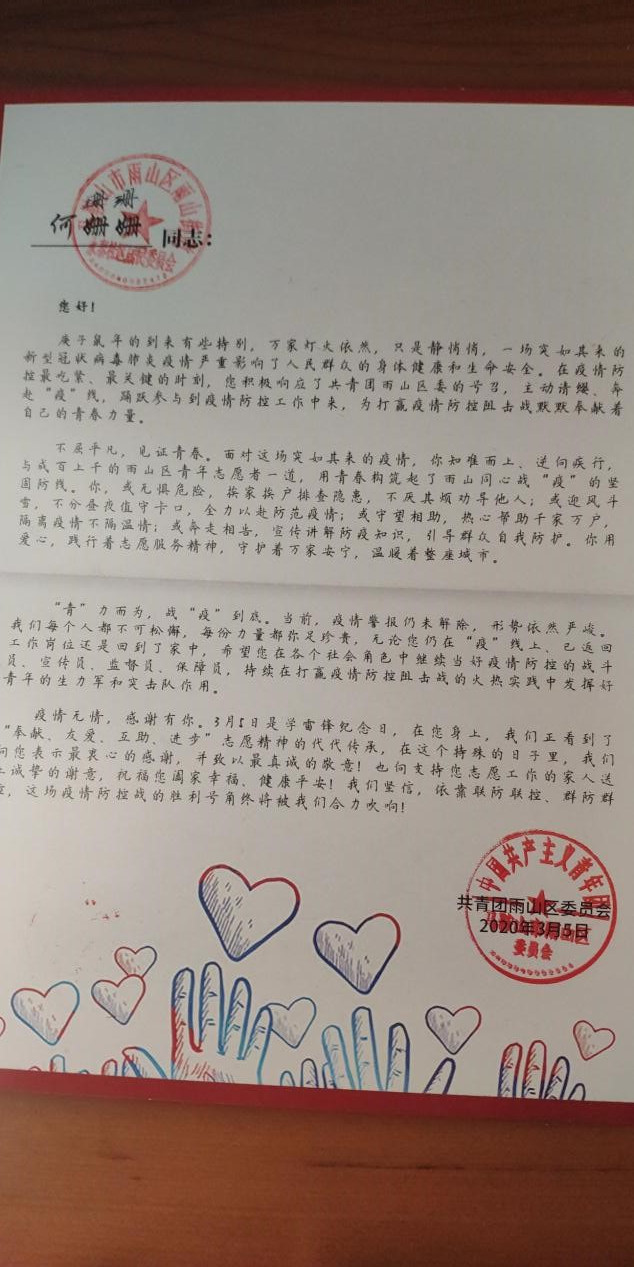 珊珊
何姗姗 同志：
您好！
庚子鼠年的到来有些特别，万家灯火依然，只是静悄悄，一场突如其来的
新型冠状病毒肺炎疫情严重影响了人民群众的身体健康和生命安全。在疫情防
控最吃紧、最关键的时刻，您积极响应了共青团雨山区委的号召，主动请缨、奔
赴“疫”线，踊跃参与到疫情防控工作中来，为打赢疫情防控阻击战默默奉献着
自己的青春力量。
不屈平凡，见证青春。面对这场突如其来的疫情，你知难而上、逆向疾行，
与成百上千的雨山区青年志愿者一道，用青春构筑起了雨山同心战“疫”的坚
固防线。你，或无惧危险，挨家挨户排查隐患，不厌其烦劝寻他人；或迎风斗
雪，不分昼夜值守卡口，全力以赴防范疫情；或守望相助，热心帮助千家万户，
隔离疫情不隔温情；或奔走相告，宣传讲解防疫知识，引导群众自我防护。你用
爱心，践行着志愿服务精神，守护着万家安宁，温暖着整座城市。
“青”力而为，战“疫”到底。当前，疫情警报仍未解除，形势依然严峻。
我们每个人都不可松懈，每份力量都弥足珍贵，无论您仍在“疫”线上、已返回
工作岗位还是回到了家中，希望您在各个社会角色中继续当好疫情防控的战斗
员、宣传员、监督员、保障员，持续在打赢疫情防控阻击战的火热实践中发挥好
青年的生力军和突击队作用。
疫情无情，感谢有你。3月5日是学雷锋纪念日，在您身上，我们正看到了
“奉献、友爱、互助、进步”志愿精神的代代传承，在这个特殊的日子里，我们
向您表示最衷心的感谢，并致以最真诚的敬意！也向支持您志愿工作的家人送
上诚挚的谢意，祝福您阖家幸福、健康平安！我们坚信，依靠联防联控、群防群
，这场疫情防控战的胜利号角终将被我们合力吹响！
中国共产主义青年团
共青团雨山区委员会
2020年3月5日
马鞍山市雨山区
委员会